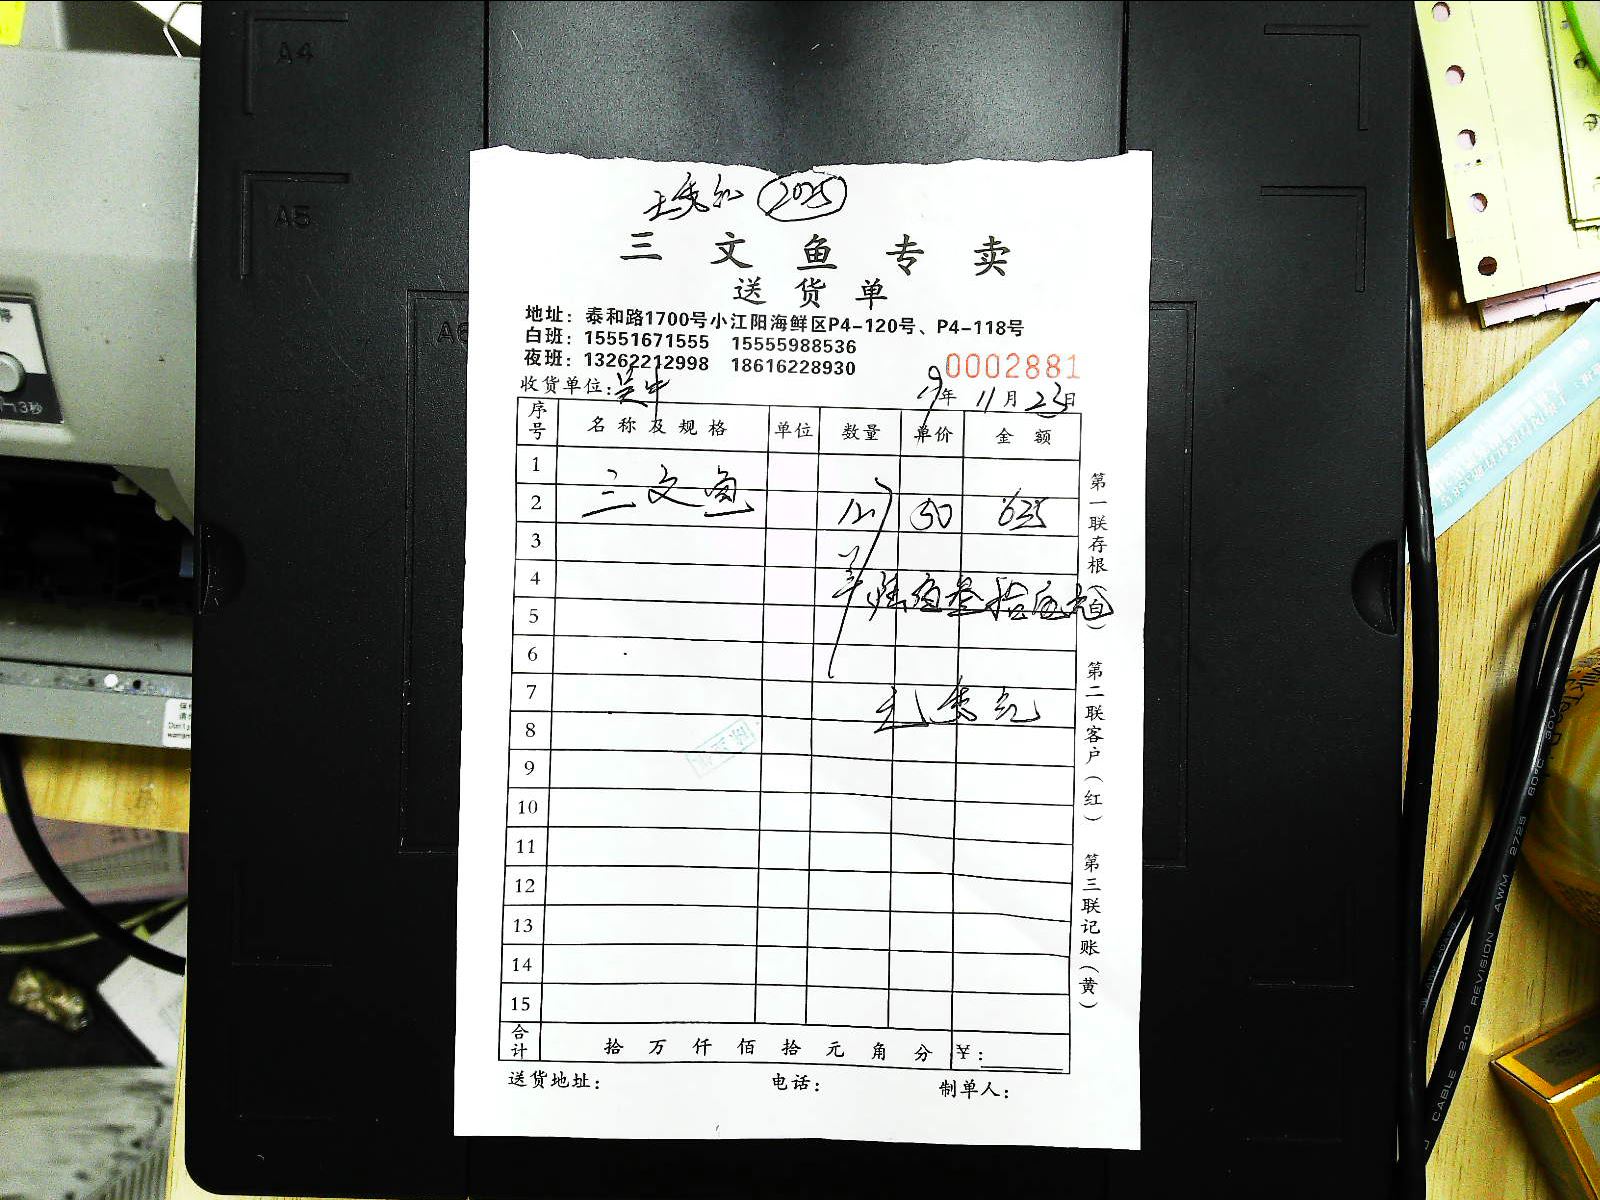 2025
三文鱼专卖
送货单
地址：泰和路1700号小江阳海鲜区P4-120号、P4-118号
白班：15551671555 15555988536
夜班：13262212998 18616228930
0002881
收货单位：吴中 19年11月23日
序号 名称及规格 单位 数量 单价 金额
1
2 三文鱼 50 635
3
4
陆佰叁拾伍元
5
6
7
8
9
10
11
12
13
14
15
合计 拾 万 仟 佰 拾 元 角 分 ¥：
送货地址： 电话： 制单人：
第一联存根
第二联客户（红）
第三联记账（黄）
A4
A5